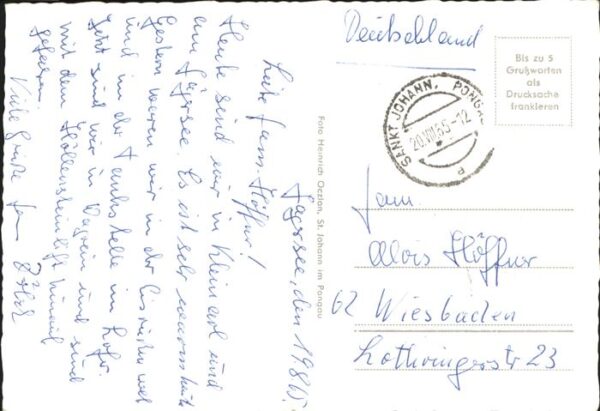 Jägersee, den 19.8.65.
Liebe Fam. Höffur!
Heute sind wir in Kleinarl und
am Jägersee. Es ist sehr warm heute
Gestern waren wir in der
und in der im Lofer.
Jetzt sind wir in Wagrein und sind
mit dem hinauf
gefahren.
Viele Grüße Fam
Foto Heinrich Oczlon, St. Johann im Pongau
Deutschland
Bis zu 5
Grußworten
als
Drucksache
frankieren
SANKT JOHANN, PONGAU
20.VIII.65-12
P
Fam.
Alois Höffur
62 Wiesbaden
Lothringerstr 23